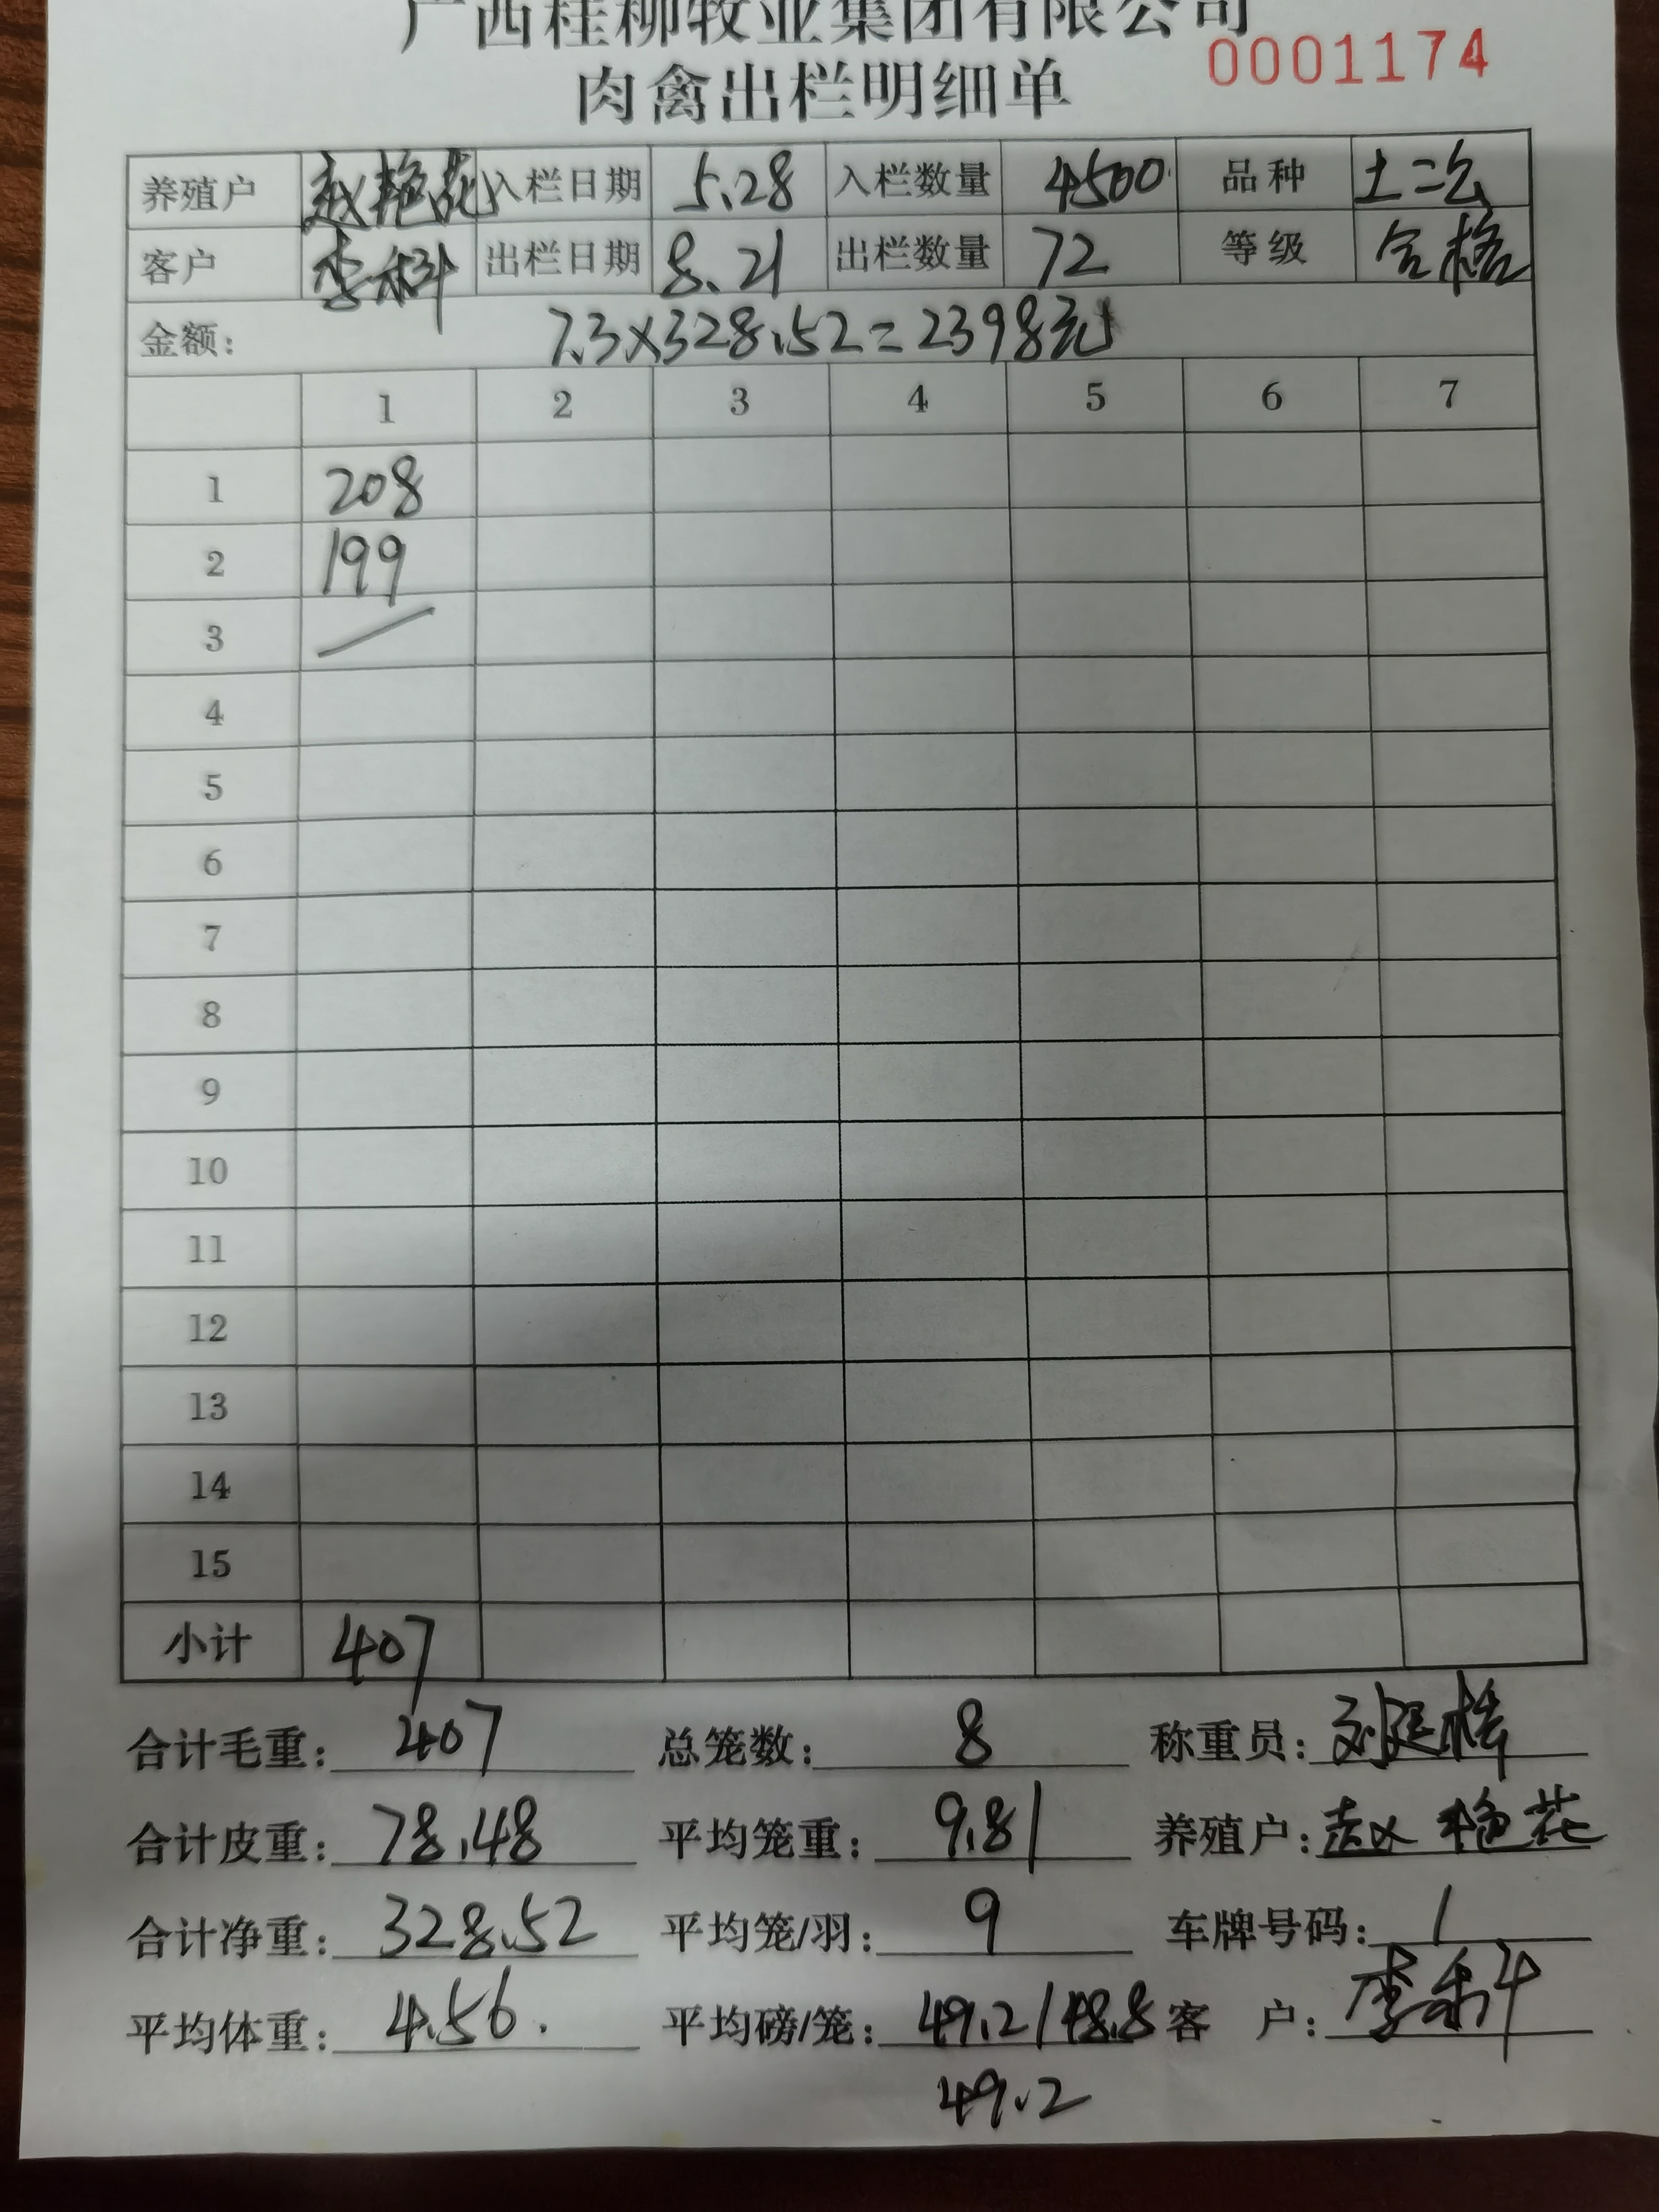 广西桂柳牧业集团有限公司
0001174
肉禽出栏明细单
养殖户 赵艳花 入栏日期 5.28 入栏数量 4500 品种 土二
客户 李科 出栏日期 8.21 出栏数量 72 等级 合格
金额: 7.3×328.52=2398元
1 2 3 4 5 6 7
1 208
2 199
3
4
5
6
7
8
9
10
11
12
13
14
15
小计 407
合计毛重: 407 总笼数: 8 称重员: 刘廷
合计皮重: 78.48 平均笼重: 9.81 养殖户: 赵艳花
合计净重: 328.52 平均笼/羽: 9 车牌号码: 1
平均体重: 4.56. 平均磅/笼: 49.2/48.8 客 户: 李科
49.2